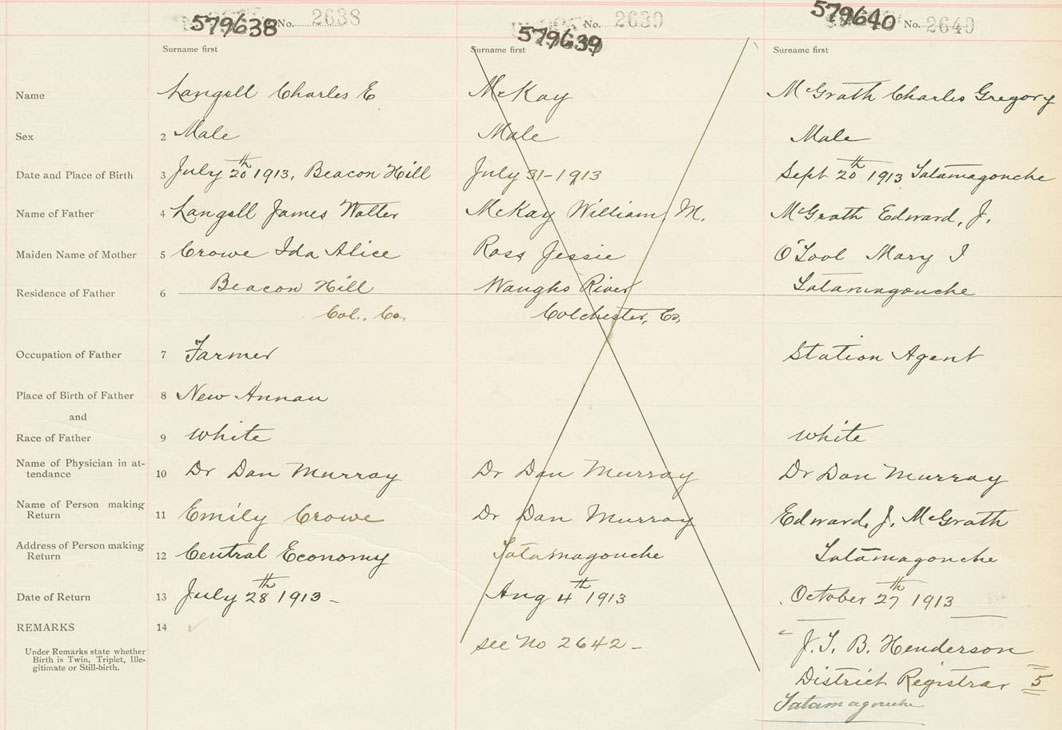 579638 No. 2638 579639 No. 2639 579640 No. 2640
Surname first Surname first Surname first
Name Langell Charles E McKay McGrath Charles Gregory
Sex 2 Male Male Male
Date and Place of Birth 3 July 20th 1913, Beacon Hill July 31-1913 Sept 20th 1913 Tatamagouche
Name of Father 4 Langell James Walter McKay William M. McGrath Edward, J.
Maiden Name of Mother 5 Crowe Ida Alice Ross Jessie O'Tool Mary I
Residence of Father 6 Beacon Hill Waughs River Tatamagouche
Col. Co. Colchester, Co,
Occupation of Father 7 Farmer Station Agent
Place of Birth of Father 8 New Annan
and
Race of Father 9 white white
Name of Physician in at- 10 Dr Dan Murray Dr Dan Murray Dr Dan Murray
tendance
Name of Person making 11 Emily Crowe Dr Dan Murray Edward, J. McGrath
Return
Address of Person making 12 Central Economy Tatamagouche Tatamagouche
Return
Date of Return 13 July 28th 1913 - Aug 4th 1913 October 27th 1913
REMARKS 14 see No 2642 - J. T. B. Henderson
Under Remarks state whether
Birth is Twin, Triplet, Ille-
gitimate or Still-birth.
District Registrar 5
Tatamagouche